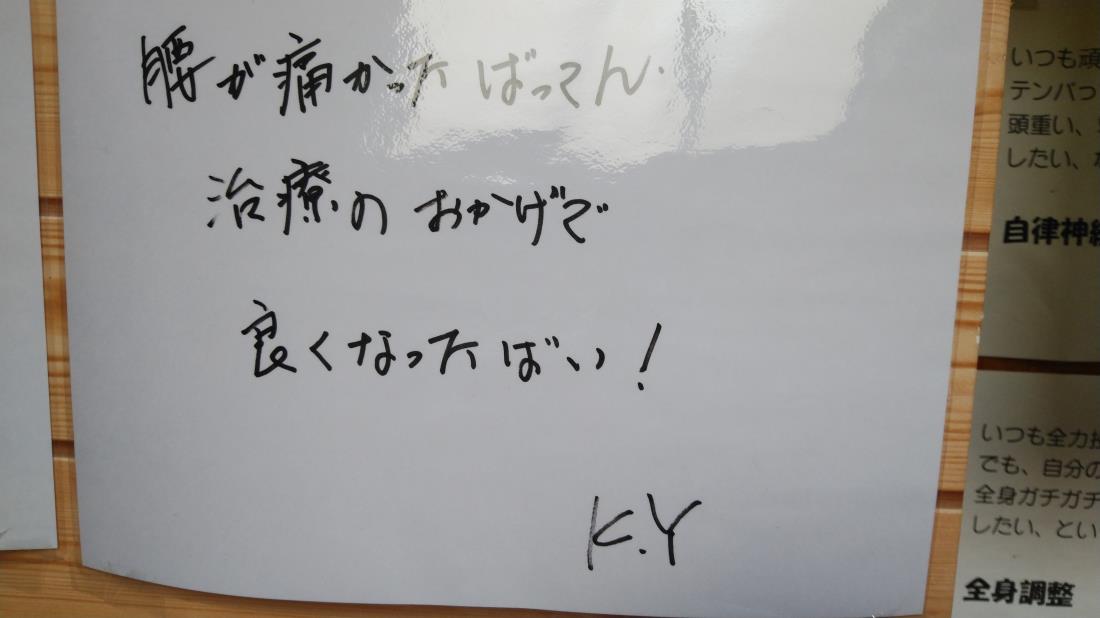 腰が痛かったばってん
治療のおかげで
良くなったばい!
K.Y
いつも頑
テンパっ
頭重い、
したい、
自律神経
いつも全力投
でも、自分の
全身ガチガチ
したい、とい
全身調整